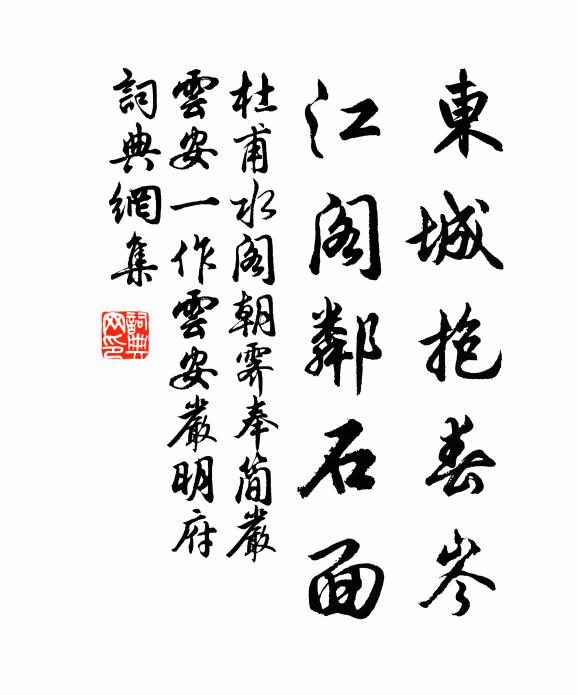 東城抱春岑
江阁鄰石面
杜甫水阁朝霽奉简嚴
雲安一作雲安嚴明府
詞典網集
詞典網印